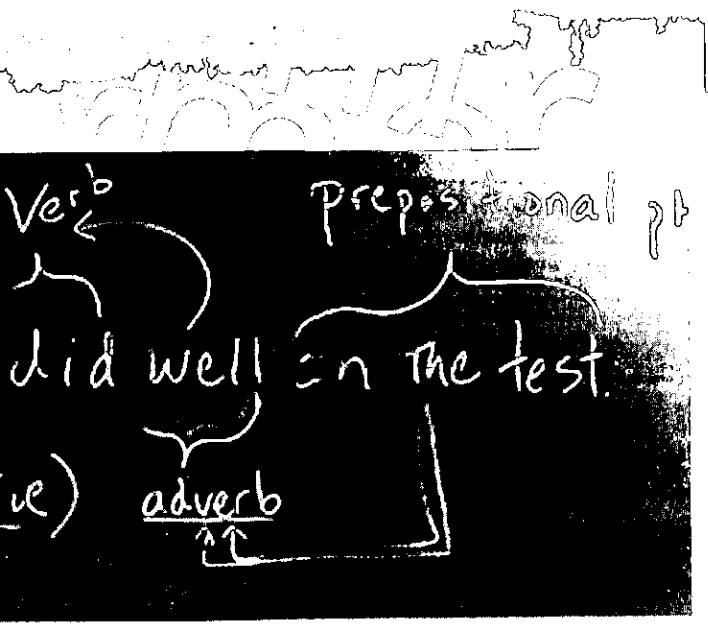 Verb prepositional
did well on the test.
adverb